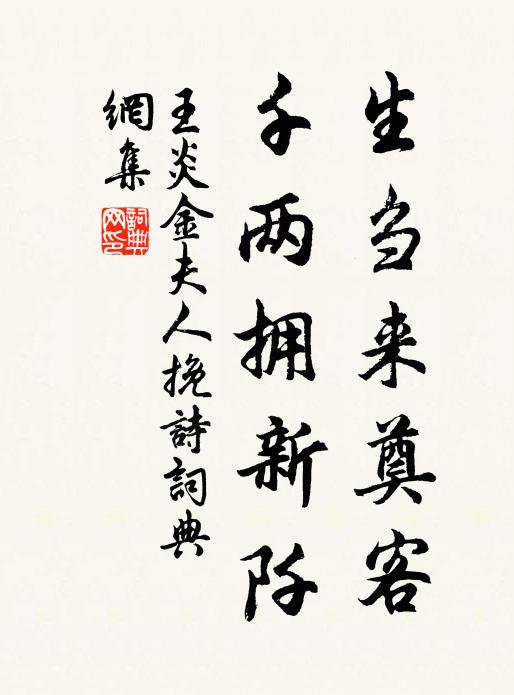 生刍来奠客
千两拥新阡
王炎金夫人挽詩詞典
網集
詞典
网印